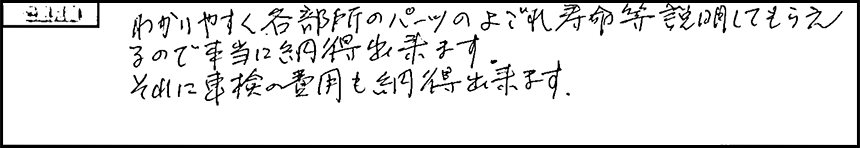 わかりやすく各部所のパーツのよごれ寿命等説明してもらえ
るので本当に納得出来ます。
それに車検の費用も納得出来ます.